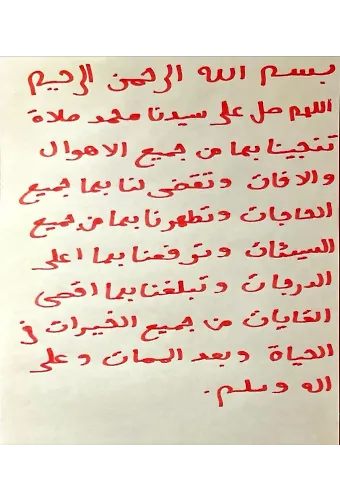 بسم الله الرحمن الرحيم
اللهم صل على سيدنا محمد صلاة
تنجينا بها من جميع الاهوال
والافات وتقضى لنا بها جميع
الحاجات وتطهرنا بها من جميع
السيئات وترفعنا بها اعلى
الدرجات وتبلغنا بها اقصى
الغايات من جميع الخيرات فى
الحياة وبعد الممات وعلى
اله وسلم.